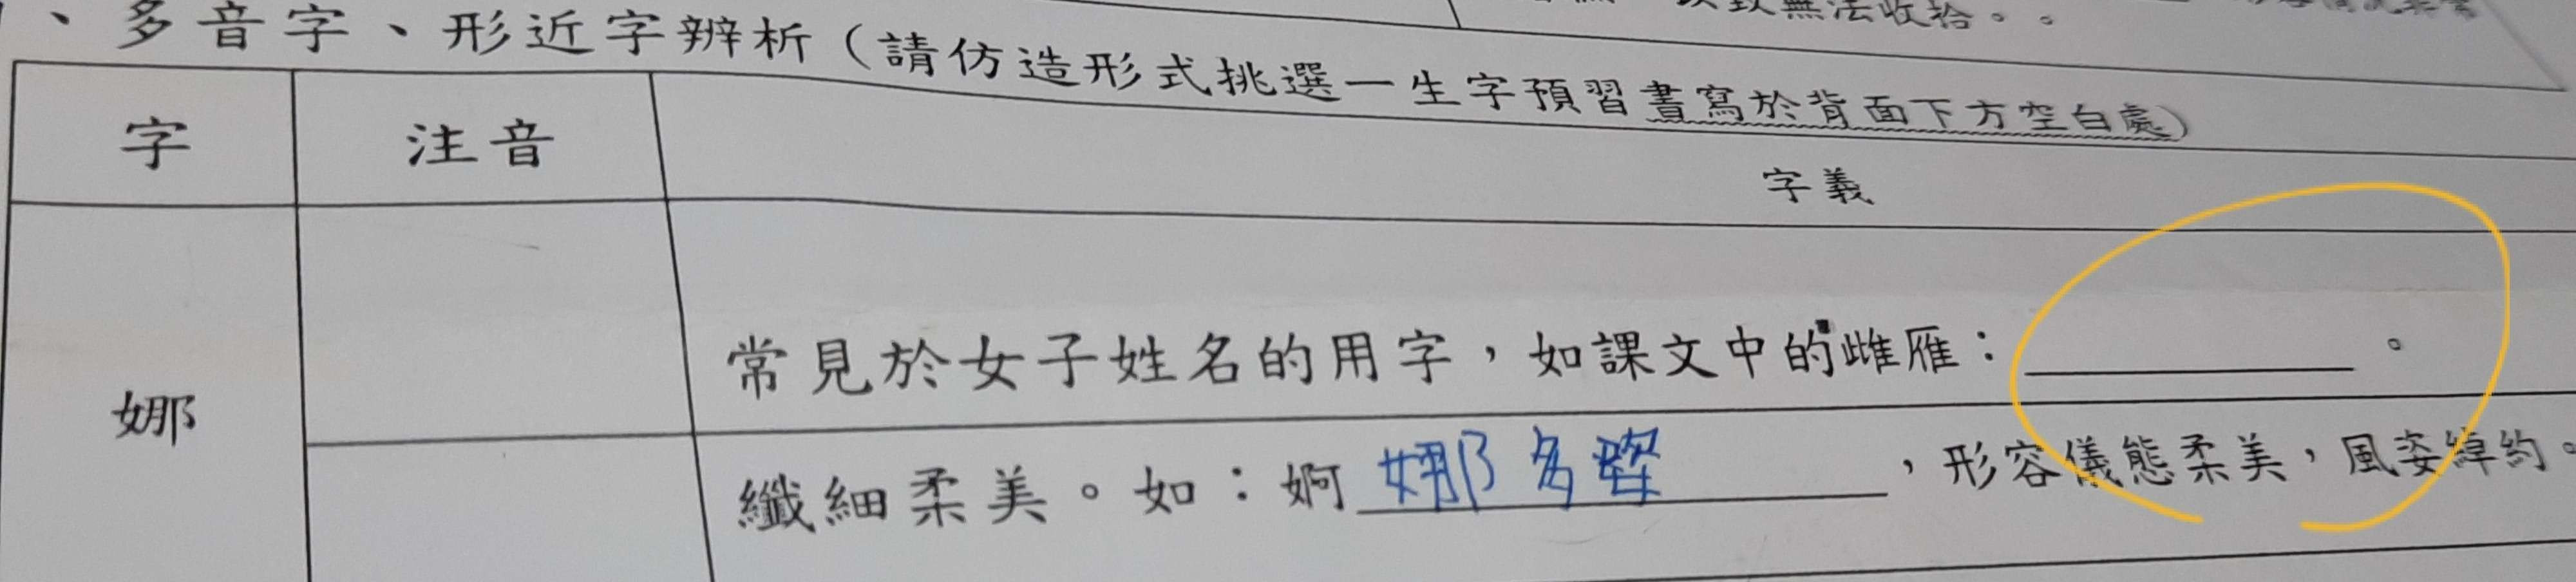 、多音字、形近字辨析（請仿造形式挑選一生字預習書寫於背面下方空白處）
無法收拾。。
字 注音 字義
娜
常見於女子姓名的用字，如課文中的雌雁：＿＿＿＿。
纖細柔美。如：婀娜多姿，形容儀態柔美，風姿綽約。